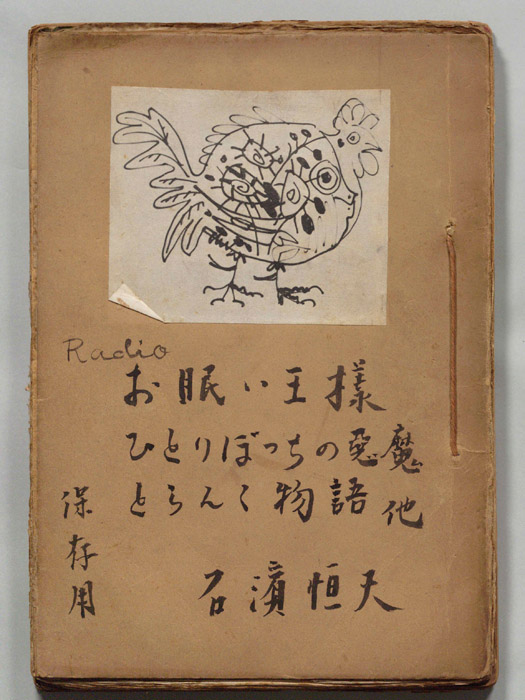 Radio
お眠い王様
ひとりぼっちの惡魔
とらんく物語 他
石濱恒夫
保存用